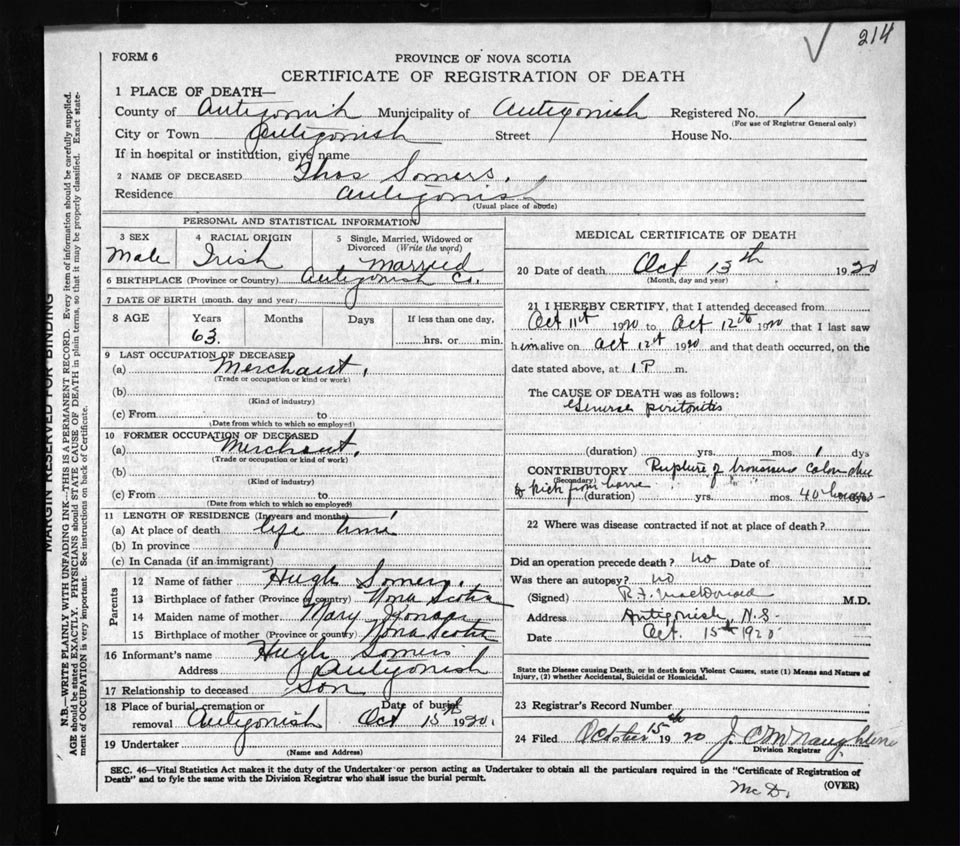 214
FORM 6
PROVINCE OF NOVA SCOTIA
CERTIFICATE OF REGISTRATION OF DEATH
1 PLACE OF DEATH—
County of Antigonish Municipality of Antigonish Registered No. 1
(For use of Registrar General only)
City or Town Antigonish Street House No.
If in hospital or institution, give name
2 NAME OF DECEASED Thos Somers.
Residence Antigonish
(Usual place of abode)
PERSONAL AND STATISTICAL INFORMATION
3 SEX 4 RACIAL ORIGIN 5 Single, Married, Widowed or Divorced (Write the word)
Male Irish Married
6 BIRTHPLACE (Province or Country) Antigonish Co.
7 DATE OF BIRTH (month, day and year)
8 AGE Years Months Days If less than one day,
63. hrs. or min.
9 LAST OCCUPATION OF DECEASED
(a) Merchant.
(Trade or occupation or kind or work)
(b)
(Kind of industry)
(c) From to
(Date from which to which so employed)
10 FORMER OCCUPATION OF DECEASED
(a) Merchant.
(Trade or occupation or kind of work)
(b)
(Kind of industry)
(c) From to
(Date from which to which so employed)
11 LENGTH OF RESIDENCE (In years and months)
(a) At place of death life time
(b) In province
(c) In Canada (if an immigrant)
Parents
12 Name of father Hugh Somers.
13 Birthplace of father (Province or country) Nova Scotia
14 Maiden name of mother Mary
15 Birthplace of mother (Province or country) Nova Scotia
16 Informant's name Hugh Somers
Address Antigonish
17 Relationship to deceased Son
18 Place of burial, cremation or removal Antigonish Date of burial Oct 15th 1920.
19 Undertaker
(Name and Address)
MEDICAL CERTIFICATE OF DEATH
20 Date of death Oct 13th 1920
(Month, day and year)
21 I HEREBY CERTIFY, that I attended deceased from
Oct 11th 1920 to Oct 12th 1920 that I last saw
him alive on Oct 12th 1920 and that death occurred, on the
date stated above, at 1 P m.
The CAUSE OF DEATH was as follows:
General peritonitis
(duration) yrs. mos. 1 dys
CONTRIBUTORY Rupture of transverse colon due
(Secondary)
to kick from horse
(duration) yrs. mos. 40 hours
22 Where was disease contracted if not at place of death?
Did an operation precede death? no Date of
Was there an autopsy? no
(Signed) R.F. MacDonald M.D.
Address Antigonish, N.S.
Date Oct. 15th 1920
State the Disease causing Death, or in death from Violent Causes, state (1) Means and Nature of Injury, (2) whether Accidental, Suicidal or Homicidal.
23 Registrar's Record Number
24 Filed October 15th 1920
Division Registrar
SEC. 46—Vital Statistics Act makes it the duty of the Undertaker or person acting as Undertaker to obtain all the particulars required in the "Certificate of Registration of
Death" and to fyle the same with the Division Registrar who shall issue the burial permit.
(OVER)
McD.
MARGIN RESERVED FOR BINDING
N.B.—WRITE PLAINLY WITH UNFADING INK—THIS IS A PERMANENT RECORD. Every item of information should be carefully supplied.
AGE should be stated EXACTLY. PHYSICIANS should STATE CAUSE OF DEATH in plain terms, so that it may be properly classified. Exact state-
ment of OCCUPATION is very important. See instructions on back of Certificate.